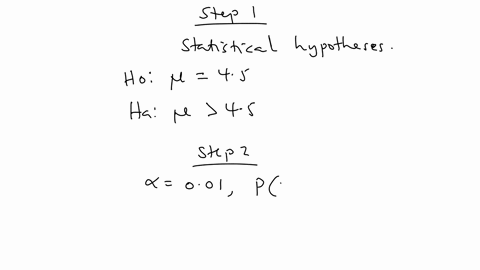 Step 1
Statistical hypotheses.
Ho: μ = 4.5
Ha: μ > 4.5
Step 2
α = 0.01, P(